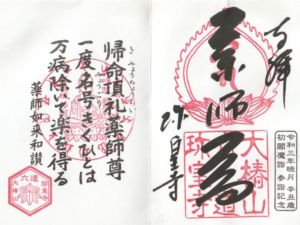 奉拝
薬師
大椿山
六道
珍皇寺
令和三年暁月 辛丑歳
初願魔詣 参詣記念
帰命頂礼薬師尊
一度名号きくひとは
万病除いて楽を得る
薬師如来和讃
六道